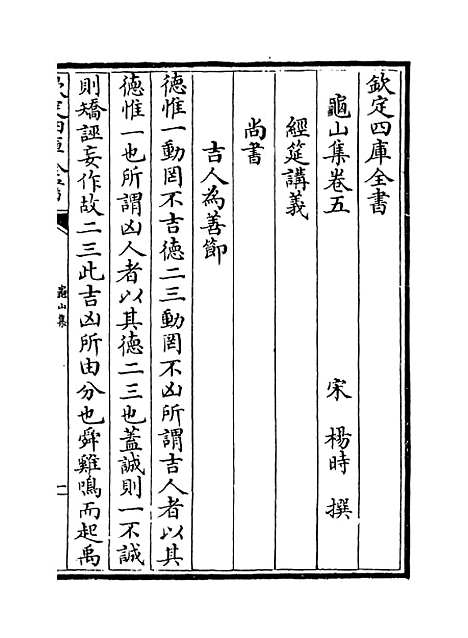 欽定四庫全書
龜山集卷五
宋 楊時 撰
經筵講義
尚書
吉人為善節
德惟一動罔不吉德二三動罔不凶所謂吉人者以其
德惟一也所謂凶人者以其德二三也蓋誠則一不誠
則矯誣妄作故二三此吉凶所由分也舜雞鳴而起禹
欽定四庫全書
龜山集
一